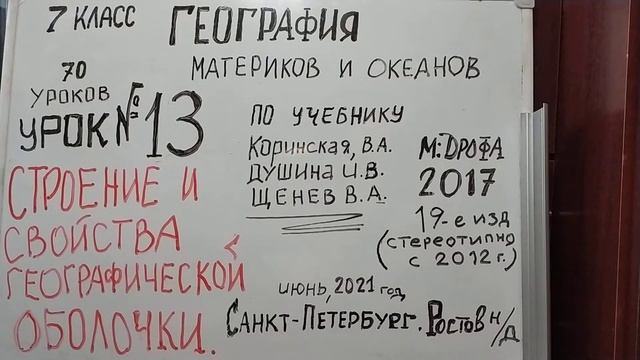 7 КЛАСС ГЕОГРАФИЯ
МАТЕРИКОВ И ОКЕАНОВ
70
УРОКОВ
УРОК № 13
СТРОЕНИЕ И
СВОЙСТВА
ГЕОГРАФИЧЕСКОЙ
ОБОЛОЧКИ.
ПО УЧЕБНИКУ
Коринская, В.А.
ДУШИНА И.В.
ЩЕНЕВ В.А.
М: ДРОФА
2017
19-е изд
(стереотипно
с 2012 г.)
июнь, 2021 год,
Санкт-Петербург. Ростов н/д